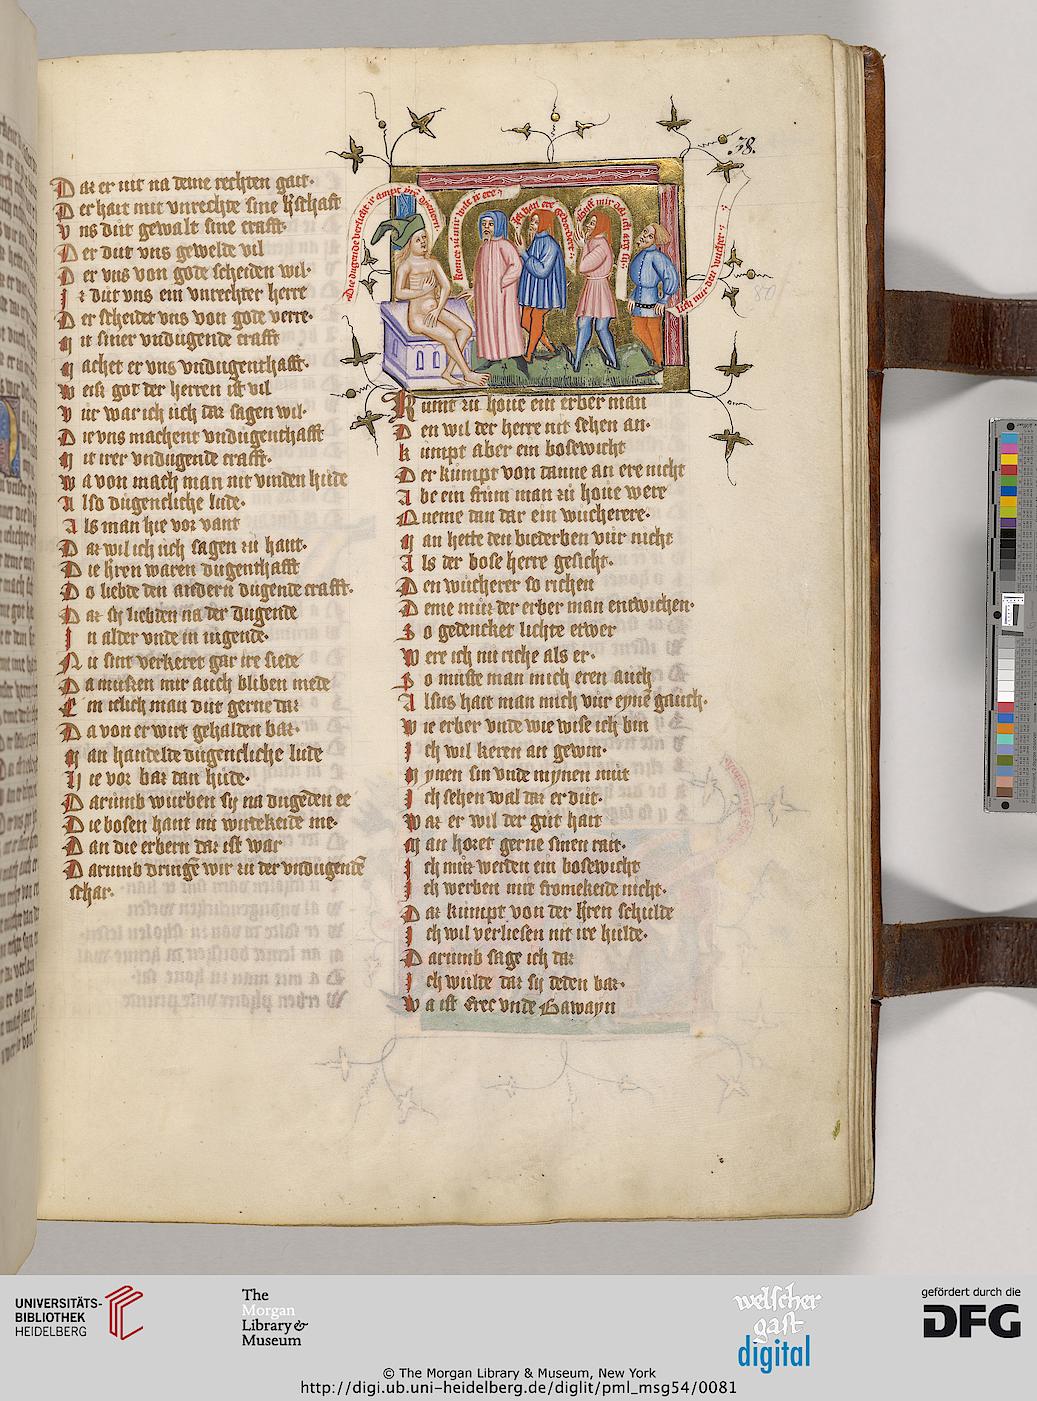 Dar er nit na deme rechten gatt.
Der hait mit vnrechte sine hˢschafft
Vns dut gewalt sine crafft.
Der dut vns gewelde vil
Der vns von gode scheiden wil.
Ir dut vns ein vnrechter herre
Der scheidet vns von gode verre.
Mit siner vndugende crafft
Machet er vns vndugenthafft.
Weist got der herren ist vil
Vur war ich uch daz sagen wil.
Die vns machent vndugenthafft
Mit irer vndugende crafft.
Wa von mach man nit vinden hude
Also dugentliche lude.
Als man hie vor vant
Daz wil ich uch sagen zu hant.
Die hˢren waren dugenthafft
Do liebte den andern dugende crafft.
Daz sy liebten na der dugende
In alder vnde in iugende.
Nu sint verkeret gar ire siede
Da mussen mir auch bliben mede
Ein iclich man dut gerne daz
Da von er wirt gehalden baz.
Man handelde dugentliche lude
Hie vor baz dan hude.
Darumb wurben sy na dugeden ee
Die bosen hant nu wirdekeide me.
Dan die erbern daz ist war
Darumb dringē wir zu der vndugendē
schar.
38.
80
Die dugende verlicht ir ampt yrē dyenern.
Komer zu mir wilt ir ere
Ich han ere
mir daz
Lich mir den wucher
Kumt zu houe ein erber man
Den wil der herre nit sehen an.
Kumpt aber ein bosewicht
Der kumpt von danne an ere nicht
Abe ein frum man zu houe were
Queme dan dar ein wucherere.
Man hette den biederben vur nicht
Als der bose herre gesicht.
Den wucherer so richen
Deme muz der erber man entwichen.
So gedencket lichte etwer
Were ich nu riche als er.
So muste man mich eren auch
Alsus hait man mich vur eynē gauch.
Wie erber vnde wie wise ich bin
Ich wil keren an gewin.
Mynen sin vnde mynen mut
Ich sehen wal daz er dut.
Waz er wil der gut hait
Man horet gerne sinen rait.
Ich muz werden ein bosewicht
Ich werben mit fromekeide nicht.
Daz kumpt von der hˢren schulde
Ich wil verliesen nit ire hulde.
Darumb sage ich daz
Ich wulde daz sy deden baz.
Wa ist Erec vnde Gawayn
UNIVERSITÄTS-
BIBLIOTHEK
HEIDELBERG
The
Morgan
Library &
Museum
welscher
gast
digital
gefördert durch die
DFG
© The Morgan Library & Museum, New York
http://digi.ub.uni-heidelberg.de/diglit/pml_msg54/0081